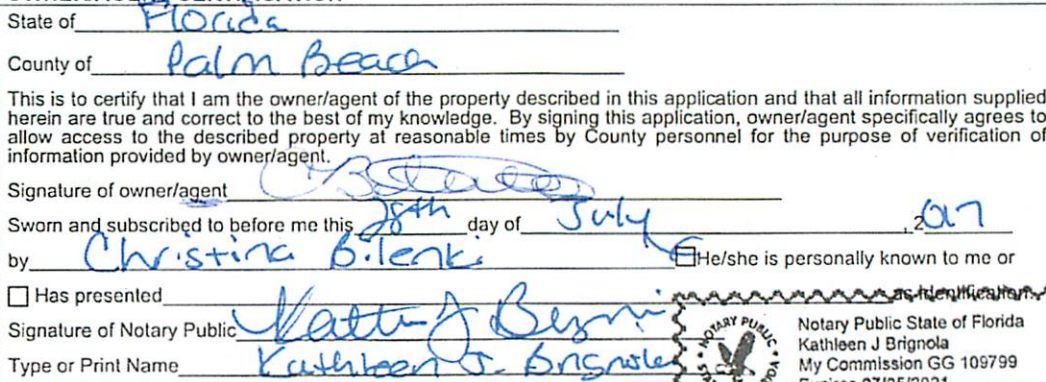 State of Florida
County of Palm Beach
This is to certify that I am the owner/agent of the property described in this application and that all information supplied
herein are true and correct to the best of my knowledge. By signing this application, owner/agent specifically agrees to
allow access to the described property at reasonable times by County personnel for the purpose of verification of
information provided by owner/agent.
Signature of owner/agent
Sworn and subscribed to before me this 28th day of July, 2017
by Christina Bilenki He/she is personally known to me or
Has presented as identification.
Signature of Notary Public
Type or Print Name Kathleen J. Brignola
NOTARY PUBLIC
Notary Public State of Florida
Kathleen J Brignola
My Commission GG 109799
Expires 07/25/2021